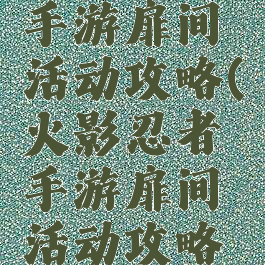 手游扉间
活动攻略(
火影忍者
手游扉间
活动攻略